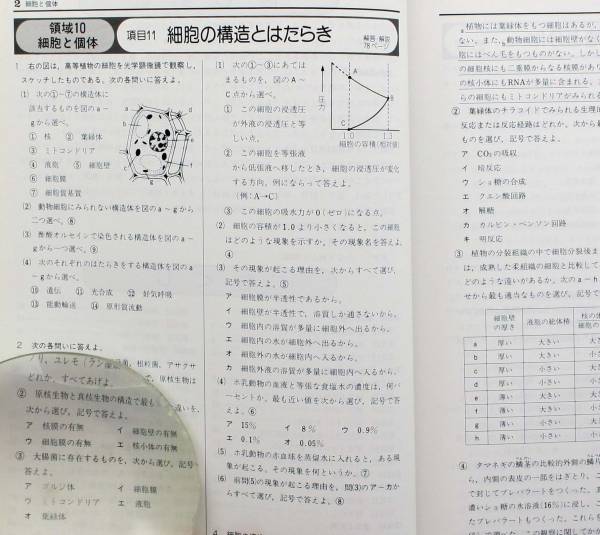 2 細胞と個体
領域10
細胞と個体
項目11 細胞の構造とはたらき
解答・解説
78ページ
1 右の図は、高等植物の細胞を光学顕微鏡で観察し、
スケッチしたものである。次の各問いに答えよ。
(1) 次の①~⑦の構造体に
該当するものを図のa~
gから選べ。
① 核 ② 葉緑体
③ ミトコンドリア
④ 液胞 ⑤ 細胞壁
⑥ 細胞膜
⑦ 細胞質基質
a
b
c
d
e
f
g
(2) 動物細胞にみられない構造体を図のa~gから
二つ選べ。⑧
(3) 酢酸オルセインで染色される構造体を図のa~
gから一つ選べ。⑨
(4) 次のそれぞれのはたらきをする構造体を図のa
~gから選べ。
⑩ 遺伝 ⑪ 光合成 ⑫ 好気呼吸
⑬ 能動輸送 ⑭ 原形質流動
2 次の各問いに答えよ。
ノリ, ユレモ(ラン
粒菌, アサクサ
どれか。すべてあげよ。
で, 原核生物は
② 原核生物と真核生物の構造で最も
違いを,
次から選び, 記号で答えよ。
ア 核膜の有無 イ 細胞壁の有無
ウ 細胞膜の有無 エ 核小体の有無
③ 大腸菌に存在するものを, 次から選び, 記号
答えよ。
ア ゴルジ体 イ 細胞膜
ウ ミトコンドリア エ 液胞
オ 葉緑体
(1) 次の①~③にあて
はまるものを, 図のA~
C点から選べ。
① この細胞の浸透圧
が外液の浸透圧と等
しい点。
② この細胞を等張液
から低張液へ移したとき, 細胞の浸透圧が変化
する方向。例にならって答えよ。
(例:A→C)
③ この細胞の吸水力が0(ゼロ)になる点。
圧力
A
B
C
1.0 1.3
細胞の容積(相対値)
(2) 細胞の容積が1.0より小さくなると, この細胞
はどのような現象を示すか。その現象名を答えよ。
④
(3) その現象が起こる理由を, 次からすべて選び,
記号で答えよ。⑤
ア 細胞膜が半透性であるから。
イ 細胞壁が半透性で, 溶質しか通さないから。
ウ 細胞内の溶質が多量に細胞外へ出るから。
エ 細胞内の水が細胞外へ出るから。
オ 細胞外の水が細胞内へ入るから。
カ 細胞外液の溶質が多量に細胞内へ入るから。
(4) ホ乳動物の血液と等張な食塩水の濃度は, 何パ
ーセントか。最も近い値を次から選び, 記号で答
えよ。⑥
ア 15% イ 8% ウ 0.9%
エ 0.1% オ 0.05%
(5) ホ乳動物の赤血球を蒸留水に入れると, ある現
象が起こる。その現象を何というか。⑦
(6) 前問(5)の現象が起こる理由を, 問(3)のア~カか
らすべて選び, 記号で答えよ。⑧
植物には葉緑体をもつ細胞はあるが,
ない。また, 動物細胞には細胞壁がなく
胞にはべん毛をもつものがない。しかし
の細胞核にも二重膜からなる核膜があり
の核小体にもRNAが多量に含まれる。
らの細胞にもミトコンドリアがみられる
② 葉緑体のチラコイドでみられる生理
反応または反応経路はどれか。次から最
ものを選び, 記号で答えよ。
ア CO₂の吸収
イ 暗反応
ウ ショ糖の合成
エ クエン酸回路
オ 解糖
カ カルビン・ベンソン回路
キ 明反応
③ 植物の分裂組織の中で細胞分裂後ま
は, 成熟した柔組織の細胞と比較して
どのような違いがあるか。次のa~h
せから最も適当なものを選び, 記号で
細胞壁の厚さ 液胞の総体積
a 厚い 大きい
b 厚い 大きい
c 厚い 小さい
d 厚い 小さい
e 薄い 大きい
f 薄い 大きい
g 薄い 小さい
h 薄い 小さい
④ タマネギの鱗茎の比較的外側の鱗片
ら, 内側の表皮の一部をはぎとり,
で封じてプレパラートをつくった。
濃いショ糖の水溶液(16%)に浸し,
たプレパラートもつくった。これらを